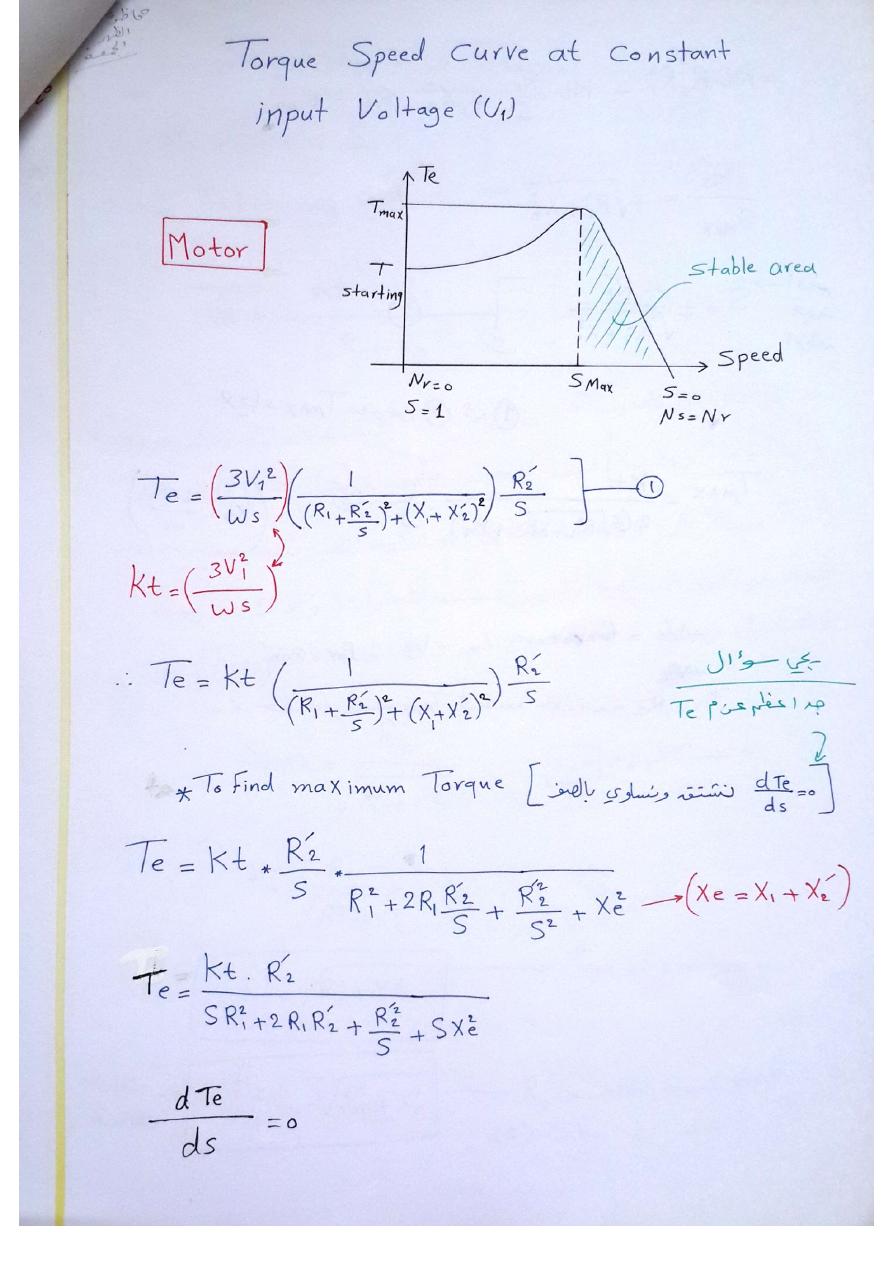 Torque Speed Curve at Constant
input Voltage (V₁)
Te
Tmax
Motor
T
starting
Stable area
Speed
Nr=0
S=1
S Max
S=0
Ns=Nr
Te = (3V₁²/Ws)(1/((R₁+R₂́/S)²+(X₁+X₂́)²)) R₂́/S ] ①
Kt=(3V₁²/Ws)
∴ Te = Kt (1/((R₁+R₂́/S)²+(X₁+X₂́)²)) R₂́/S
يجي سوؤال
جد اعظم عزم Te
* To Find maximum Torque [نشتق ونساوي بالصفر dTe/ds =0]
Te = Kt * R₂́/S * 1/(R₁²+2R₁R₂́/S + R₂́²/S² + Xe²) → (Xe = X₁ + X₂́)
Te = Kt . R₂́/(SR₁²+2R₁R₂́ + R₂́²/S + SXe²)
dTe/ds =0